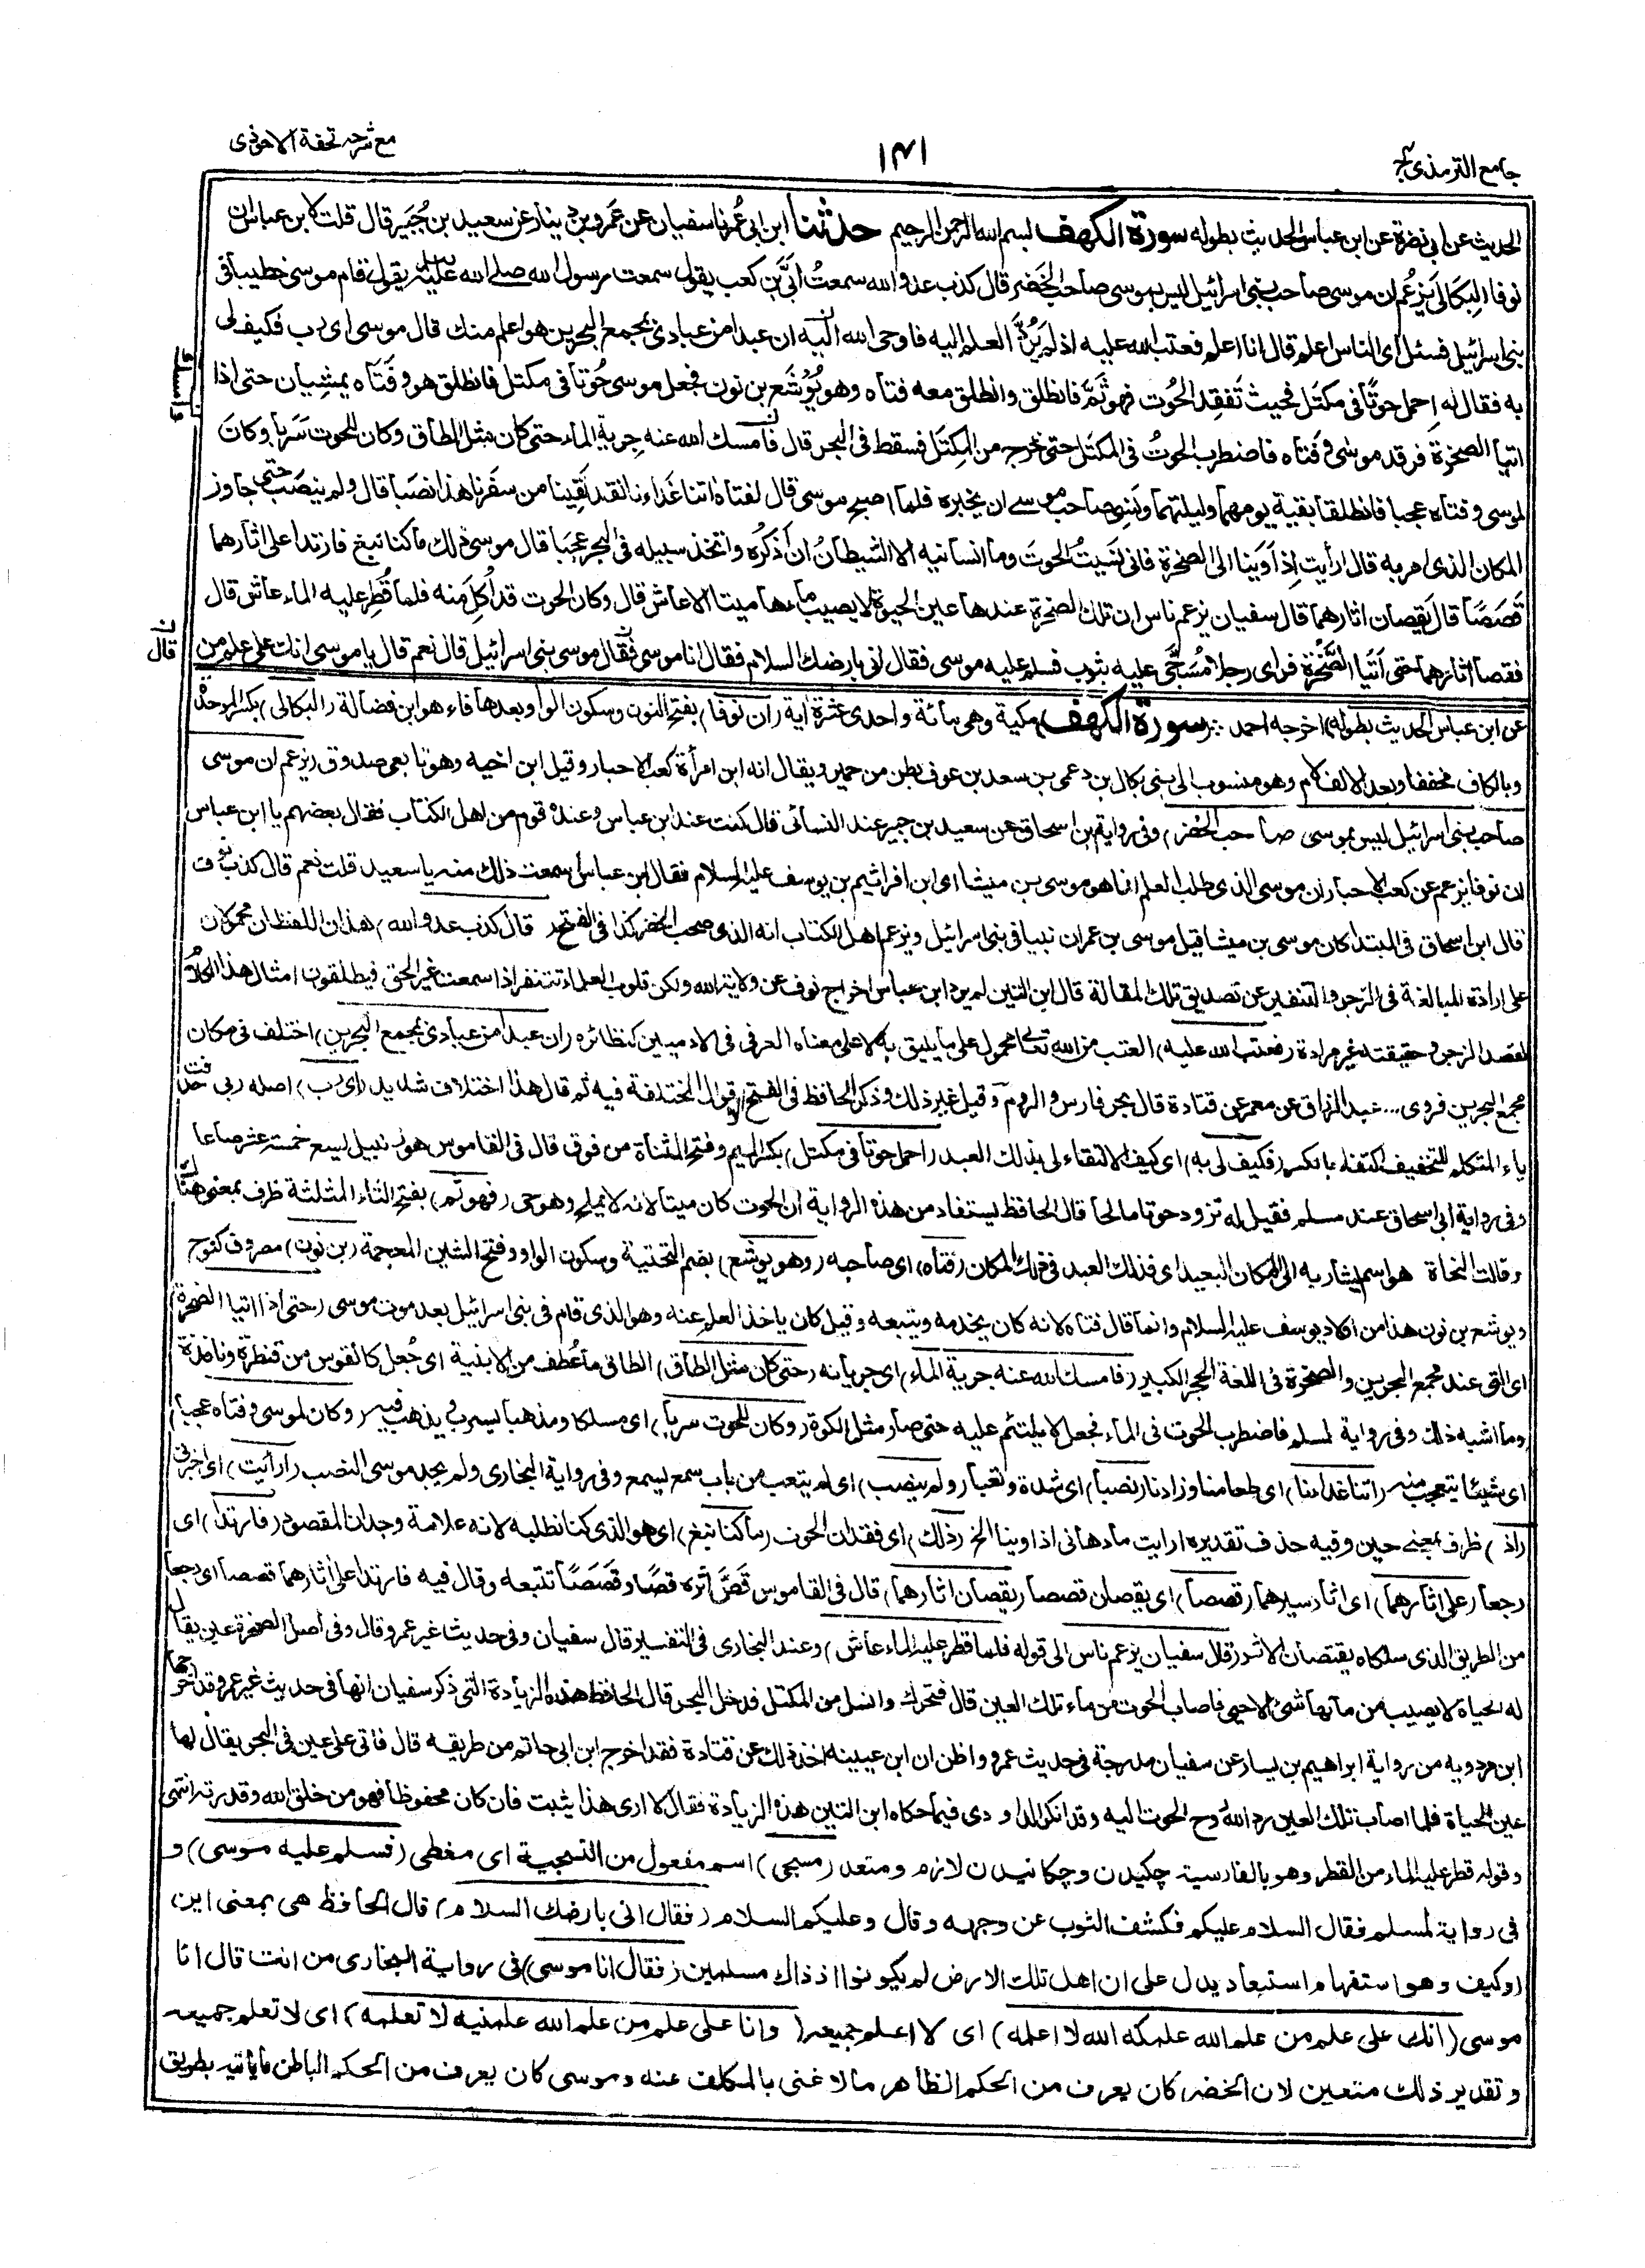 جامع الترمذی ج۴
۱۴۱
مع شرحہ تحفة الاحوذی
الحدیث عن ابی نضرة عن ابن عباس الحدیث بطوله سورة الکهف بسم الله الرحمن الرحیم حدثنا ابن ابی عُمر نا سفیان عن عَمرو بن دینار عن سعید بن جُبَیر قال قلت لابن عباس ان
نوفا البِکَالِیَّ یَزعُم ان موسی صاحب بنی اسرائیل لیس بموسی صاحب الخَضِر قال کذب عدو الله سمعتُ اُبَیَّ بن کعب یقول سمعت رسول الله صلے الله علیه وسلم یقول قام موسی خطیبا فی
بنی اسرائیل فسئل ای الناس اعلم قال انا اعلم فعتب الله علیه اذ لم یَرُدَّ العلم الیه فاوحی الله الیه ان عبدا من عبادی بمجمع البحرین هو اعلم منك قال موسی ای رب فکیف لی
به فقال له اِحمل حوتًا فی مکتَل فحیث تَفقِد الحُوت فهو ثَمَّ فانطلق وانطلق معه فتاه وهو یُوشَع بن نون فجعل موسی حُوتا فی مکتل فانطلق هو وفَتاه یمشِیان حتی اذا
اتیا الصخرة فرقد موسٰی وفَتاه فاضطرب الحوتُ فی المکتَل حتی خرج من المِکتَل فسقط فی البحر قال فامسك الله عنه جِریة الماء حتی کان مثل الطاق وکان للحوت سَرَبا وکان
لموسی وفتاه عجبا فانطلقا بقیة یومهما ولیلتهما ونَسِی صاحب موسے ان یخبره فلما اصبح موسی قال لفتاه اتنا غداءنا لقد لَقِینا من سفَرنا هذا نصَبا قال ولم ینصَب حتی جاوز
المکان الذی امر به قال ارأیت اِذ اَوَینا الی الصخرة فانی نَسَیتُ الحوتَ وما انسانیه الا الشیطانُ ان اَذکُره واتخذ سبیله فی البحر عجَبًا قال موسی ذلك ما کنا نبغ فارتدا علی اثارهما
قَصَصًا قال یَقُصان اثارهما قال سفیان یزعم ناس ان تلك الصخرة عندها عین الحیوة لا یصیب ماءها میتا الا عاش قال وکان الحوت قد اُکِل منه فلما قُطِر علیه الماء عاش قال
فقصا اثارهما حتی اَتَیَا الصَّخْرة فرای رجلا مُسَجًّی علیه بثوب فسلم علیه موسی فقال انی بارضك السلام فقال انا موسی فقال موسی بنی اسرائیل قال نعم قال یا موسی انك علی علم من
قال
عن ابن عباس الحدیث بطوله) اخرجه احمد ؞ (سورة الکهف) مکیة وهی مائة واحدی عشرة اٰیة (ان نوفا) بفتح النون وسکون الواو وبعدها فاء هو ابن فضالة (البکالی) بکسر الموحدة
وبالکاف مخففا وبعد الالف لام وهو منسوب الی بنی بکال بن دعمی بن سعد بن عوف بطن من حمیر ویقال انه ابن امرأة کعب الاحبار وقیل ابن اخیه وهو تابعی صدوق (یزعم ان موسی
صاحب بنی اسرائیل لیس بموسی صاحب الخضر) وفی روایة ابن اسحاق عن سعید بن جبیر عند النسائی قال کنت عند ابن عباس وعنده قوم من اهل الکتاب فقال بعضهم یا ابن عباس
ان نوفا یزعم عن کعب الاحبار ان موسی الذی طلب العلم انما هو موسی بن میشا ای ابن افراثیم بن یوسف علیه السلام فقال ابن عباس أسمعت ذلك منه یا سعید قلت نعم قال کذب نوف
قال ابن اسحاق فی المبتدا کان موسی بن میشا قبل موسی بن عمران نبیا فی بنی اسرائیل ویزعم اهل الکتاب انه الذی صحب الخضر کذا فی الفتح (قال کذب عدو الله) هذان اللفظان محمولان
علی ارادة المبالغة فی الزجر والتنفیر عن تصدیق تلك المقالة قال ابن التین لم یرد ابن عباس اخراج نوف عن ولایة الله ولکن قلوب العلماء تتنفر اذا سمعت غیر الحق فیطلقون امثال هذا الکلام
لقصد الزجر وحقیقته غیر مرادة (فعتب الله علیه) العتب من الله تعالی محمول علی ما یلیق به لا علی معناه العرفی فی الادمیین کنظائره (ان عبدا من عبادی بمجمع البحرین) اختلف فی مکان
مجمع البحرین فروی ... عبد الرزاق عن معمر عن قتادة قال بحر فارس والروم وقیل غیر ذلك وذکر الحافظ فی الفتح اقوالا مختلفة فیه ثم قال هذا اختلاف شدید (ای رب) اصله ربی حذفت
یاء المتکلم للتخفیف اکتفاء بالکسر (فکیف لی به) ای کیف الالتقاء لی بذلك العبد (احمل حوتا فی مکتل) بکسر المیم وفتح المثناة من فوق قال فی القاموس هو زنبیل یسع خمسة عشر صاعا
وفی روایة ابی اسحاق عند مسلم فقیل له تزود حوتا مالحا قال الحافظ یستفاد من هذه الروایة ان الحوت کان میتا لانه لا یملح وهو حی (فهو ثم) بفتح الثاء المثلثة ظرف بمعنی هناك
وقالت النحاة هو اسم یشار به الی المکان البعید ای فذلك العبد فی ذلك المکان (فتاه) ای صاحبه (وهو یوشع) بضم التحتیة وسکون الواو وفتح الشین المعجمة (بن نون) مصروف کنوح
ویوشع بن نون هذا من اولاد یوسف علیه السلام وانما قال فتاه لانه کان یخدمه ویتبعه وقیل کان یاخذ العلم عنه وهو الذی قام فی بنی اسرائیل بعد موت موسی (حتی اذا اتیا الصخرة)
ای التی عند مجمع البحرین والصخرة فی اللغة الحجر الکبیر (فامسك الله عنه جریة الماء) ای جریانه (حتی کان مثل الطاق) الطاق ما عُطف من الابنیة ای جُعل کالقوس من قنطرة ونافذة
وما اشبه ذلك وفی روایة لمسلم فاضطرب الحوت فی الماء فجعل لا یلتئم علیه حتی صار مثل الکوة (وکان للحوت سربا) ای مسلکا ومذهبا یسرب یذهب فیه (وکان لموسی وفتاه عجبا)
ای شیئا یتعجب منه (اتنا غداءنا) ای طعامنا وزادنا (نصبا) ای شدة وتعبا (ولم ینصب) ای لم یتعب من باب سمع یسمع وفی روایة البخاری ولم یجد موسی النصب (ارأیت) ای اخبرنی
(اذ) ظرف بمعنے حین وفیه حذف تقدیره ارایت ما دهانی اذ اوینا الخ (ذلك) ای فقدان الحوت (ما کنا نبغ) ای هو الذی کنا نطلبه لانه علامة وجدان المقصود (فارتدا) ای
رجعا (علی اثارهما) ای اثار سیرهما (قصصا) ای یقصان قصصا (یقصان اثارهما) قال فی القاموس قَصَّ أثره قصًّا وقَصَصًا تتبعه وقال فیه فارتدا علی اثارهما قصصا ای رجعا
من الطریق الذی سلکاه یقتصان الاثر (قال سفیان یزعم ناس الی قوله فلما قطر علیه الماء عاش) وعند البخاری فی التفسیر قال سفیان وفی حدیث غیر عمرو قال وفی اصل الصخرة عین یقال
له الحیاة لا یصیب من مائها شئ الا حیی فاصاب الحوت من ماء تلك العین قال فتحرك وانسل من المکتل فدخل البحر قال الحافظ هذه الزیادة التی ذکر سفیان انها فی حدیث غیر عمرو قد اخرجها
ابن مردویه من روایة ابراهیم بن یسار عن سفیان مدرجة فی حدیث عمرو واظن ان ابن عیینه اخذ ذلك عن قتادة فقد اخرج ابن ابی حاتم من طریقه قال فاتی علی عین فی البحر یقال لها
عین الحیاة فلما اصاب تلك العین رد الله روح الحوت الیه وقد انکر الداودی فیما حکاه ابن التین هذه الزیادة فقال لا اری هذا یثبت فان کان محفوظا فهو من خلق الله وقدرته انتهی
وقوله قطر علیه الماء من القطر وهو بالفارسیة چکیدن وچکانیدن لازم ومتعد (مسجی) اسم مفعول من التسجیة ای مغطی (فسلم علیه موسی) و
فی روایة لمسلم فقال السلام علیکم فکشف الثوب عن وجهه وقال وعلیکم السلام (فقال انی بارضك السلام) قال الحافظ هی بمعنی این
او کیف وهو استفهام استبعاد یدل علی ان اهل تلك الارض لم یکونوا اذ ذاك مسلمین (فقال انا موسی) فی روایة البخاری من انت قال انا
موسی (انك علی علم من علم الله علمکه الله لا اعلمه) ای لا اعلم جمیعه (وانا علی علم من علم الله علمنیه لا تعلمه) ای لا تعلم جمیعه
وتقدیر ذلك متعین لان الخضر کان یعرف من الحکم الظاهر ما لا غنی بالمکلف عنه وموسی کان یعرف من الحکم الباطن ما یأتیه بطریق